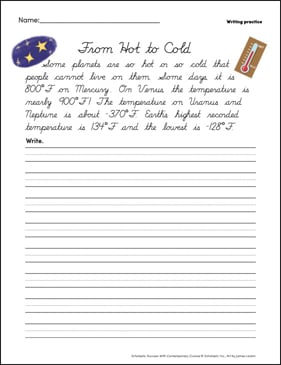 Name:
Writing practice
From Hot to Cold
Some planets are so hot or so cold that
people cannot live on them. Some days it is
800°F on Mercury. On Venus the temperature is
nearly 900°F! The temperature on Uranus and
Neptune is about -370°F. Earth's highest recorded
temperature is 134°F and the lowest is -128°F.
Write.
Scholastic Success With Contemporary Cursive © Scholastic Inc.